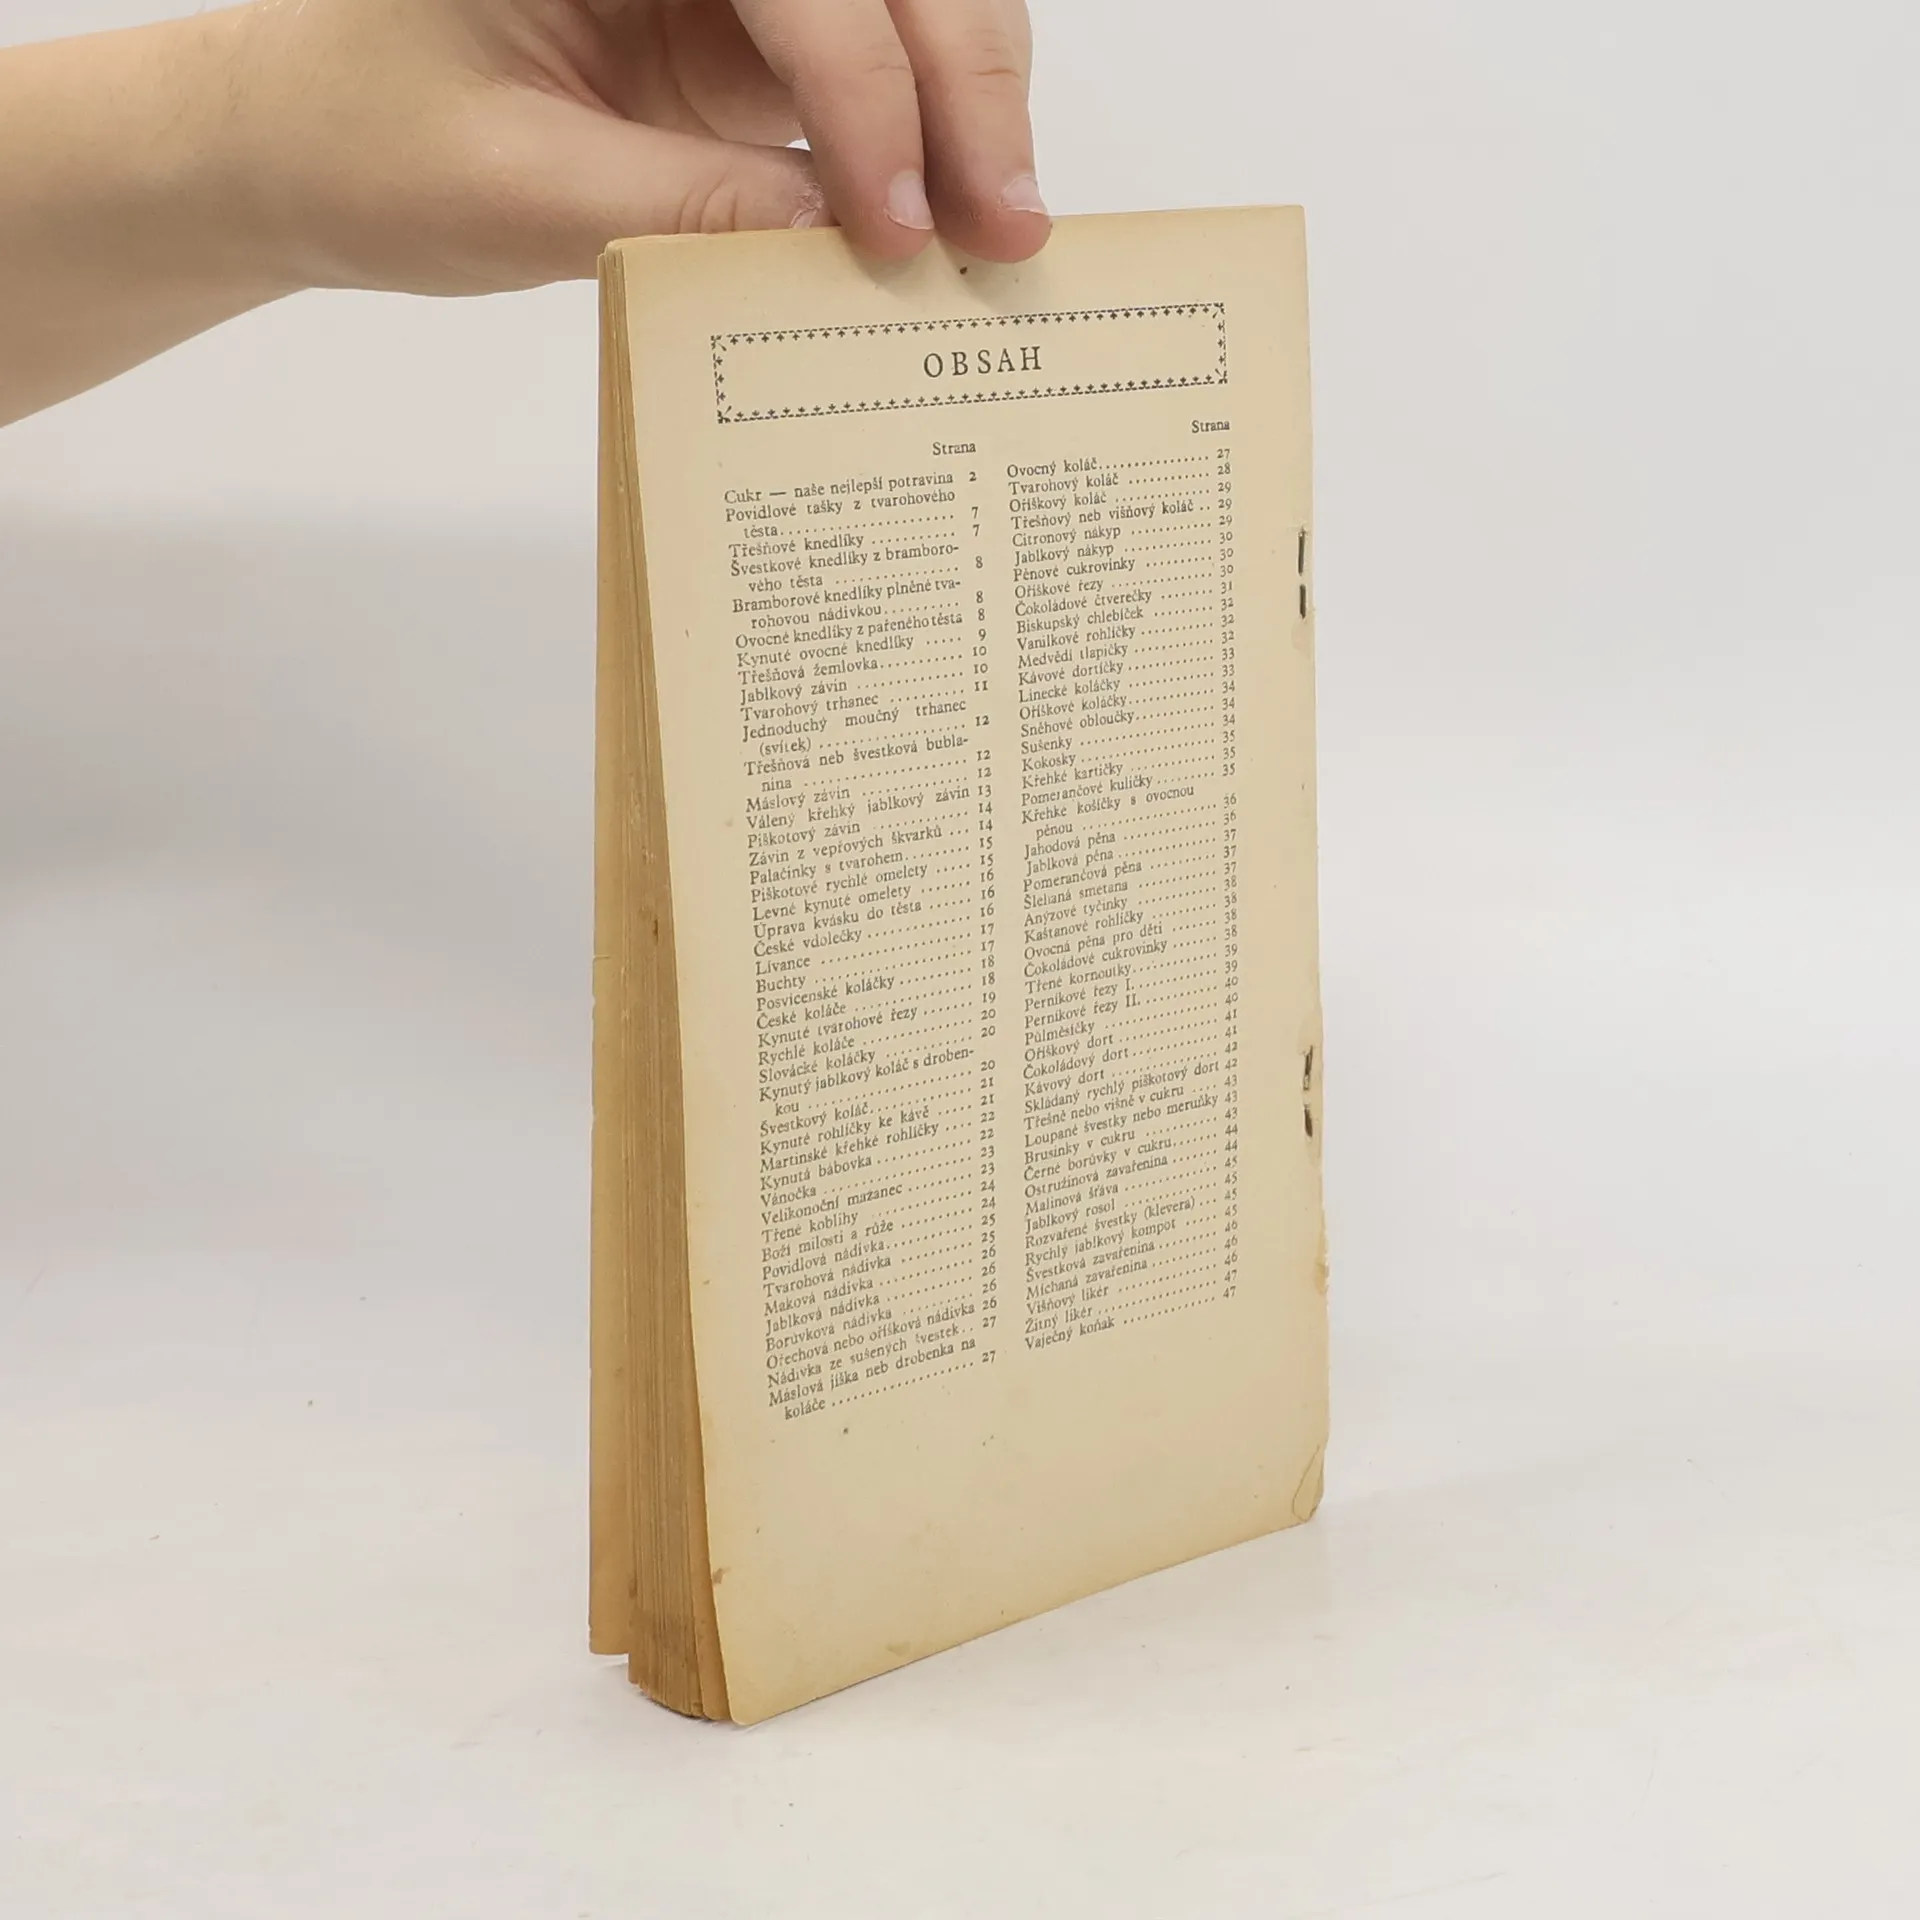 OBSAH
Strana
Cukr — naše nejlepší potravina 2
Povidlové tašky z tvarohového
těsta...................... 7
Třešňové knedlíky ........... 7
Švestkové knedlíky z bramboro-
vého těsta ................ 8
Bramborové knedlíky plněné tva-
rohovou nádivkou.......... 8
Ovocné knedlíky z pařeného těsta 8
Kynuté ovocné knedlíky ..... 9
Třešňová žemlovka........... 10
Jablkový závin .............. 10
Tvarohový trhanec .......... 11
Jednoduchý moučný trhanec
(svítek) .................. 12
Třešňová neb švestková bubla-
nina ..................... 12
Máslový závin .............. 12
Válený křehký jablkový závin 13
Piškotový závin ............ 14
Závin z vepřových škvarků ... 14
Palačinky s tvarohem......... 15
Piškotové rychlé omelety ..... 15
Levné kynuté omelety ....... 16
Úprava kvásku do těsta ...... 16
České vdolečky ............. 16
Lívance .................... 17
Buchty ..................... 17
Posvícenské koláčky ......... 18
České koláče ............... 18
Kynuté tvarohové řezy ....... 19
Rychlé koláče .............. 20
Slovácké koláčky ........... 20
Kynutý jablkový koláč s droben-
kou ...................... 20
Švestkový koláč............. 21
Kynuté rohlíčky ke kávě ..... 21
Martinské křehké rohlíčky .... 22
Kynutá bábovka ............ 22
Vánočka .................... 23
Velikonoční mazanec ........ 23
Třené koblihy .............. 24
Boží milosti a růže .......... 24
Povidlová nádivka........... 25
Tvarohová nádivka .......... 25
Maková nádivka ............ 26
Jablková nádivka ........... 26
Borůvková nádivka .......... 26
Ořechová nebo oříšková nádivka 26
Nádivka ze sušených švestek.. 27
Máslová jíška neb drobenka na
koláče .................... 27
Strana
Ovocný koláč................ 27
Tvarohový koláč ............ 28
Oříškový koláč .............. 29
Třešňový neb višňový koláč .. 29
Citronový nákyp ............ 29
Jablkový nákyp ............. 30
Pěnové cukrovinky ......... 30
Oříškové řezy .............. 30
Čokoládové čtverečky ........ 31
Biskupský chlebíček ......... 32
Vanilkové rohlíčky ........... 32
Medvědí tlapičky ............ 32
Kávové dortíčky ............. 33
Linecké koláčky ............. 33
Oříškové koláčky............. 34
Sněhové obloučky............ 34
Sušenky .................... 34
Kokosky .................... 35
Křehké kartičky ............. 35
Pomerančové kuličky......... 35
Křehké košíčky s ovocnou
pěnou .................... 36
Jahodová pěna .............. 36
Jablková pěna............... 37
Pomerančová pěna .......... 37
Šlehaná smetana ............ 37
Anýzové tyčinky ............ 38
Kaštanové rohlíčky .......... 38
Ovocná pěna pro děti ....... 38
Čokoládové cukrovinky ....... 38
Třené kornoutky............. 39
Perníkové řezy I. ............ 39
Perníkové řezy II. ........... 40
Půlměsíčky ................. 40
Oříškový dort ............... 41
Čokoládový dort............. 41
Kávový dort ................ 42
Skládaný rychlý piškotový dort 42
Třešně nebo višně v cukru .... 43
Loupané švestky nebo meruňky 43
Brusinky v cukru ........... 43
Černé borůvky v cukru....... 44
Ostružinová zavařenina ....... 44
Malinová šťáva .............. 45
Jablkový rosol .............. 45
Rozvařené švestky (klevera) ... 45
Rychlý jablkový kompot ..... 45
Švestková zavařenina ......... 46
Míchaná zavařenina .......... 46
Višňový likér ............... 46
Žitný likér.................. 47
Vaječný koňak .............. 47